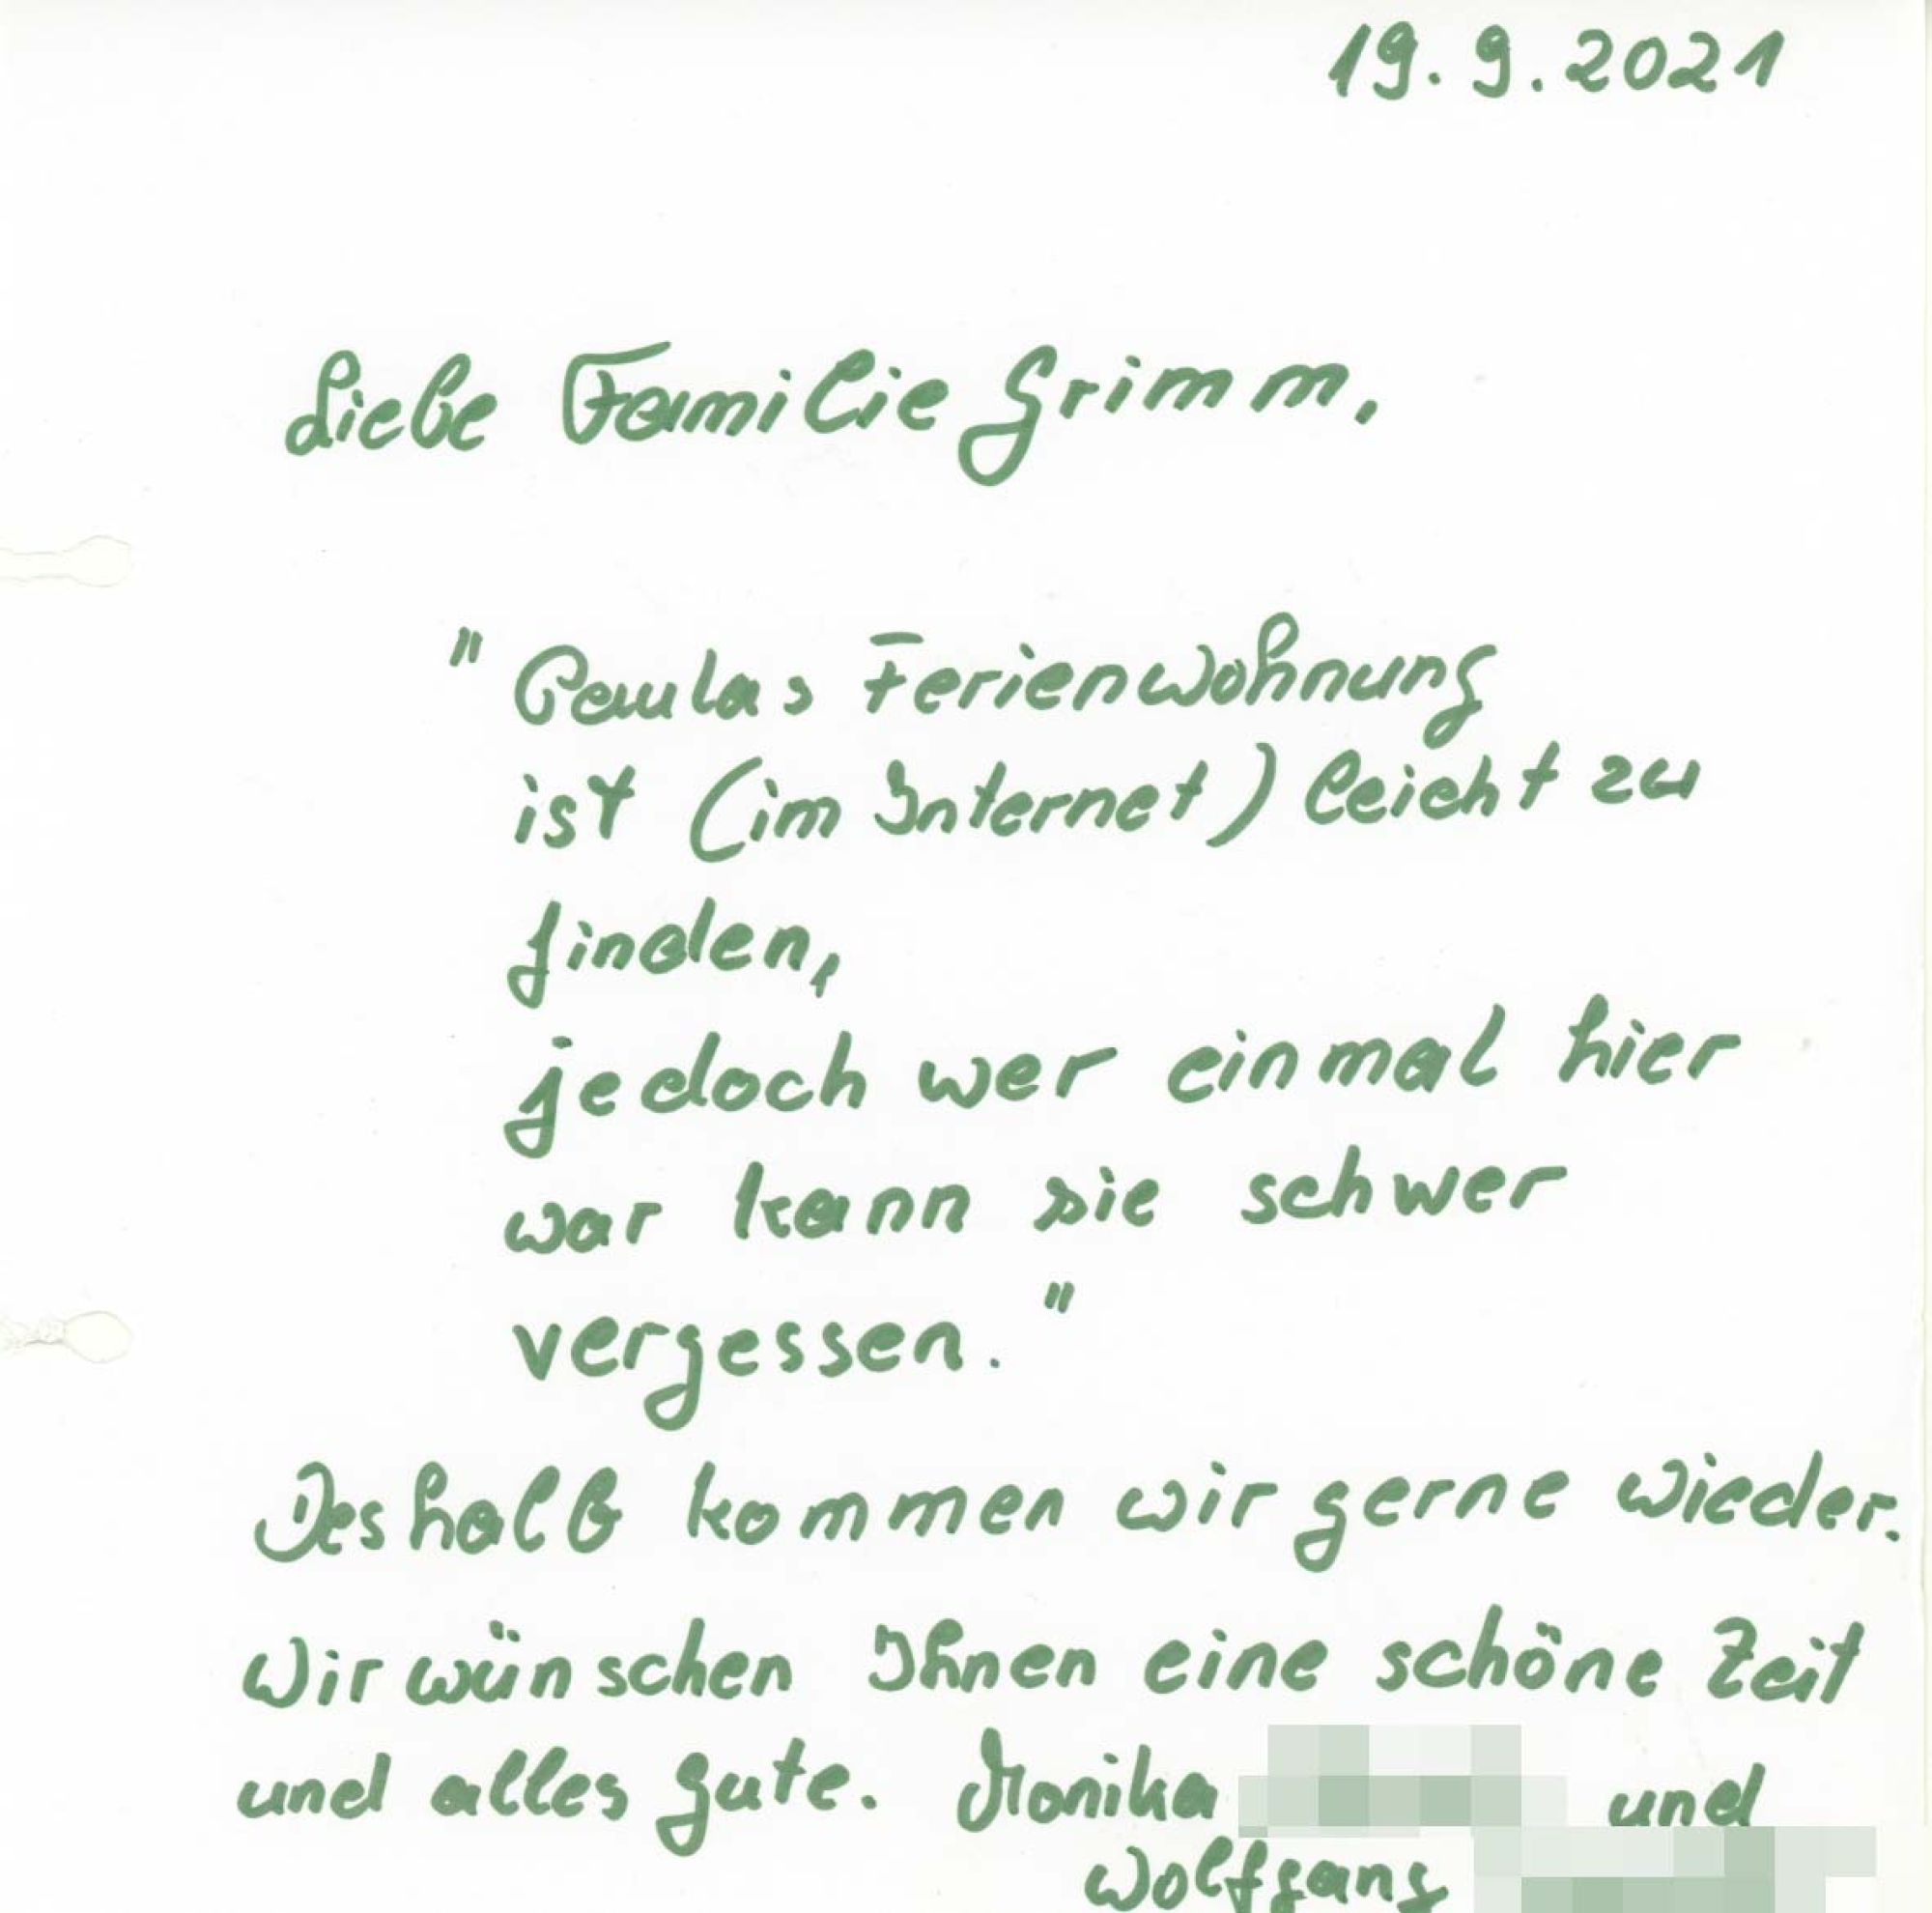 19.9.2021
Liebe Familie Grimm,
"Paulas Ferienwohnung
ist (im Internet) leicht zu
finden,
jedoch wer einmal hier
war kann sie schwer
vergessen."
Deshalb kommen wir gerne wieder.
Wir wünschen Ihnen eine schöne Zeit
und alles gute. Monika und
Wolfgang